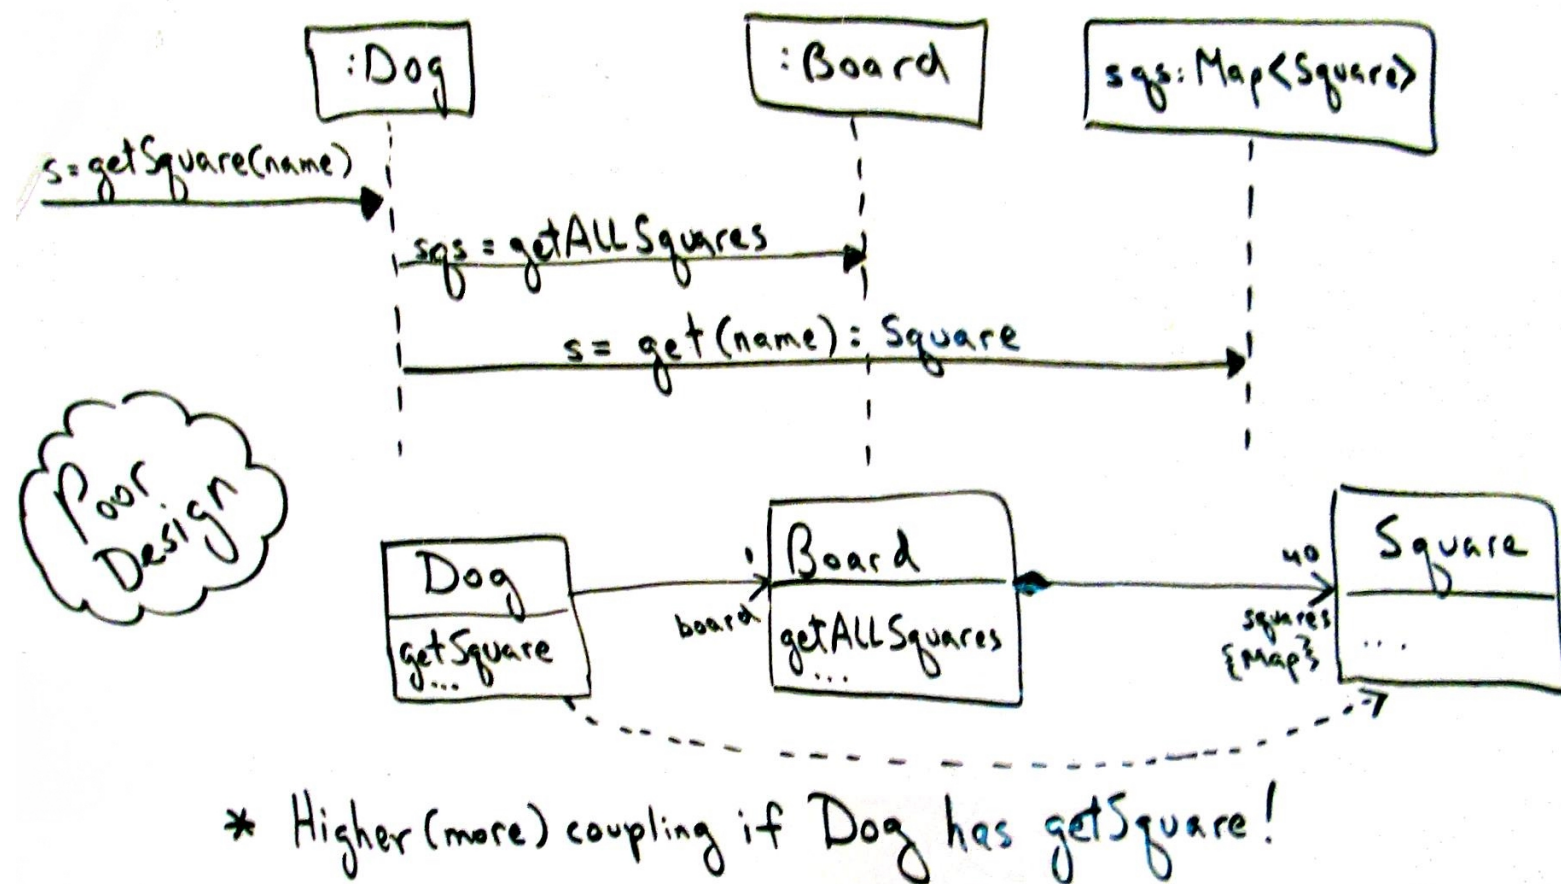 :Dog
:Board
sqs:Map<Square>
s=getSquare(name)
sqs = getALLSquares
s= get(name): Square
Poor
Design
Dog
getSquare
...
1
board
Board
getALLSquares
...
40
squares
{Map}
Square
...
* Higher (more) coupling if Dog has getSquare!